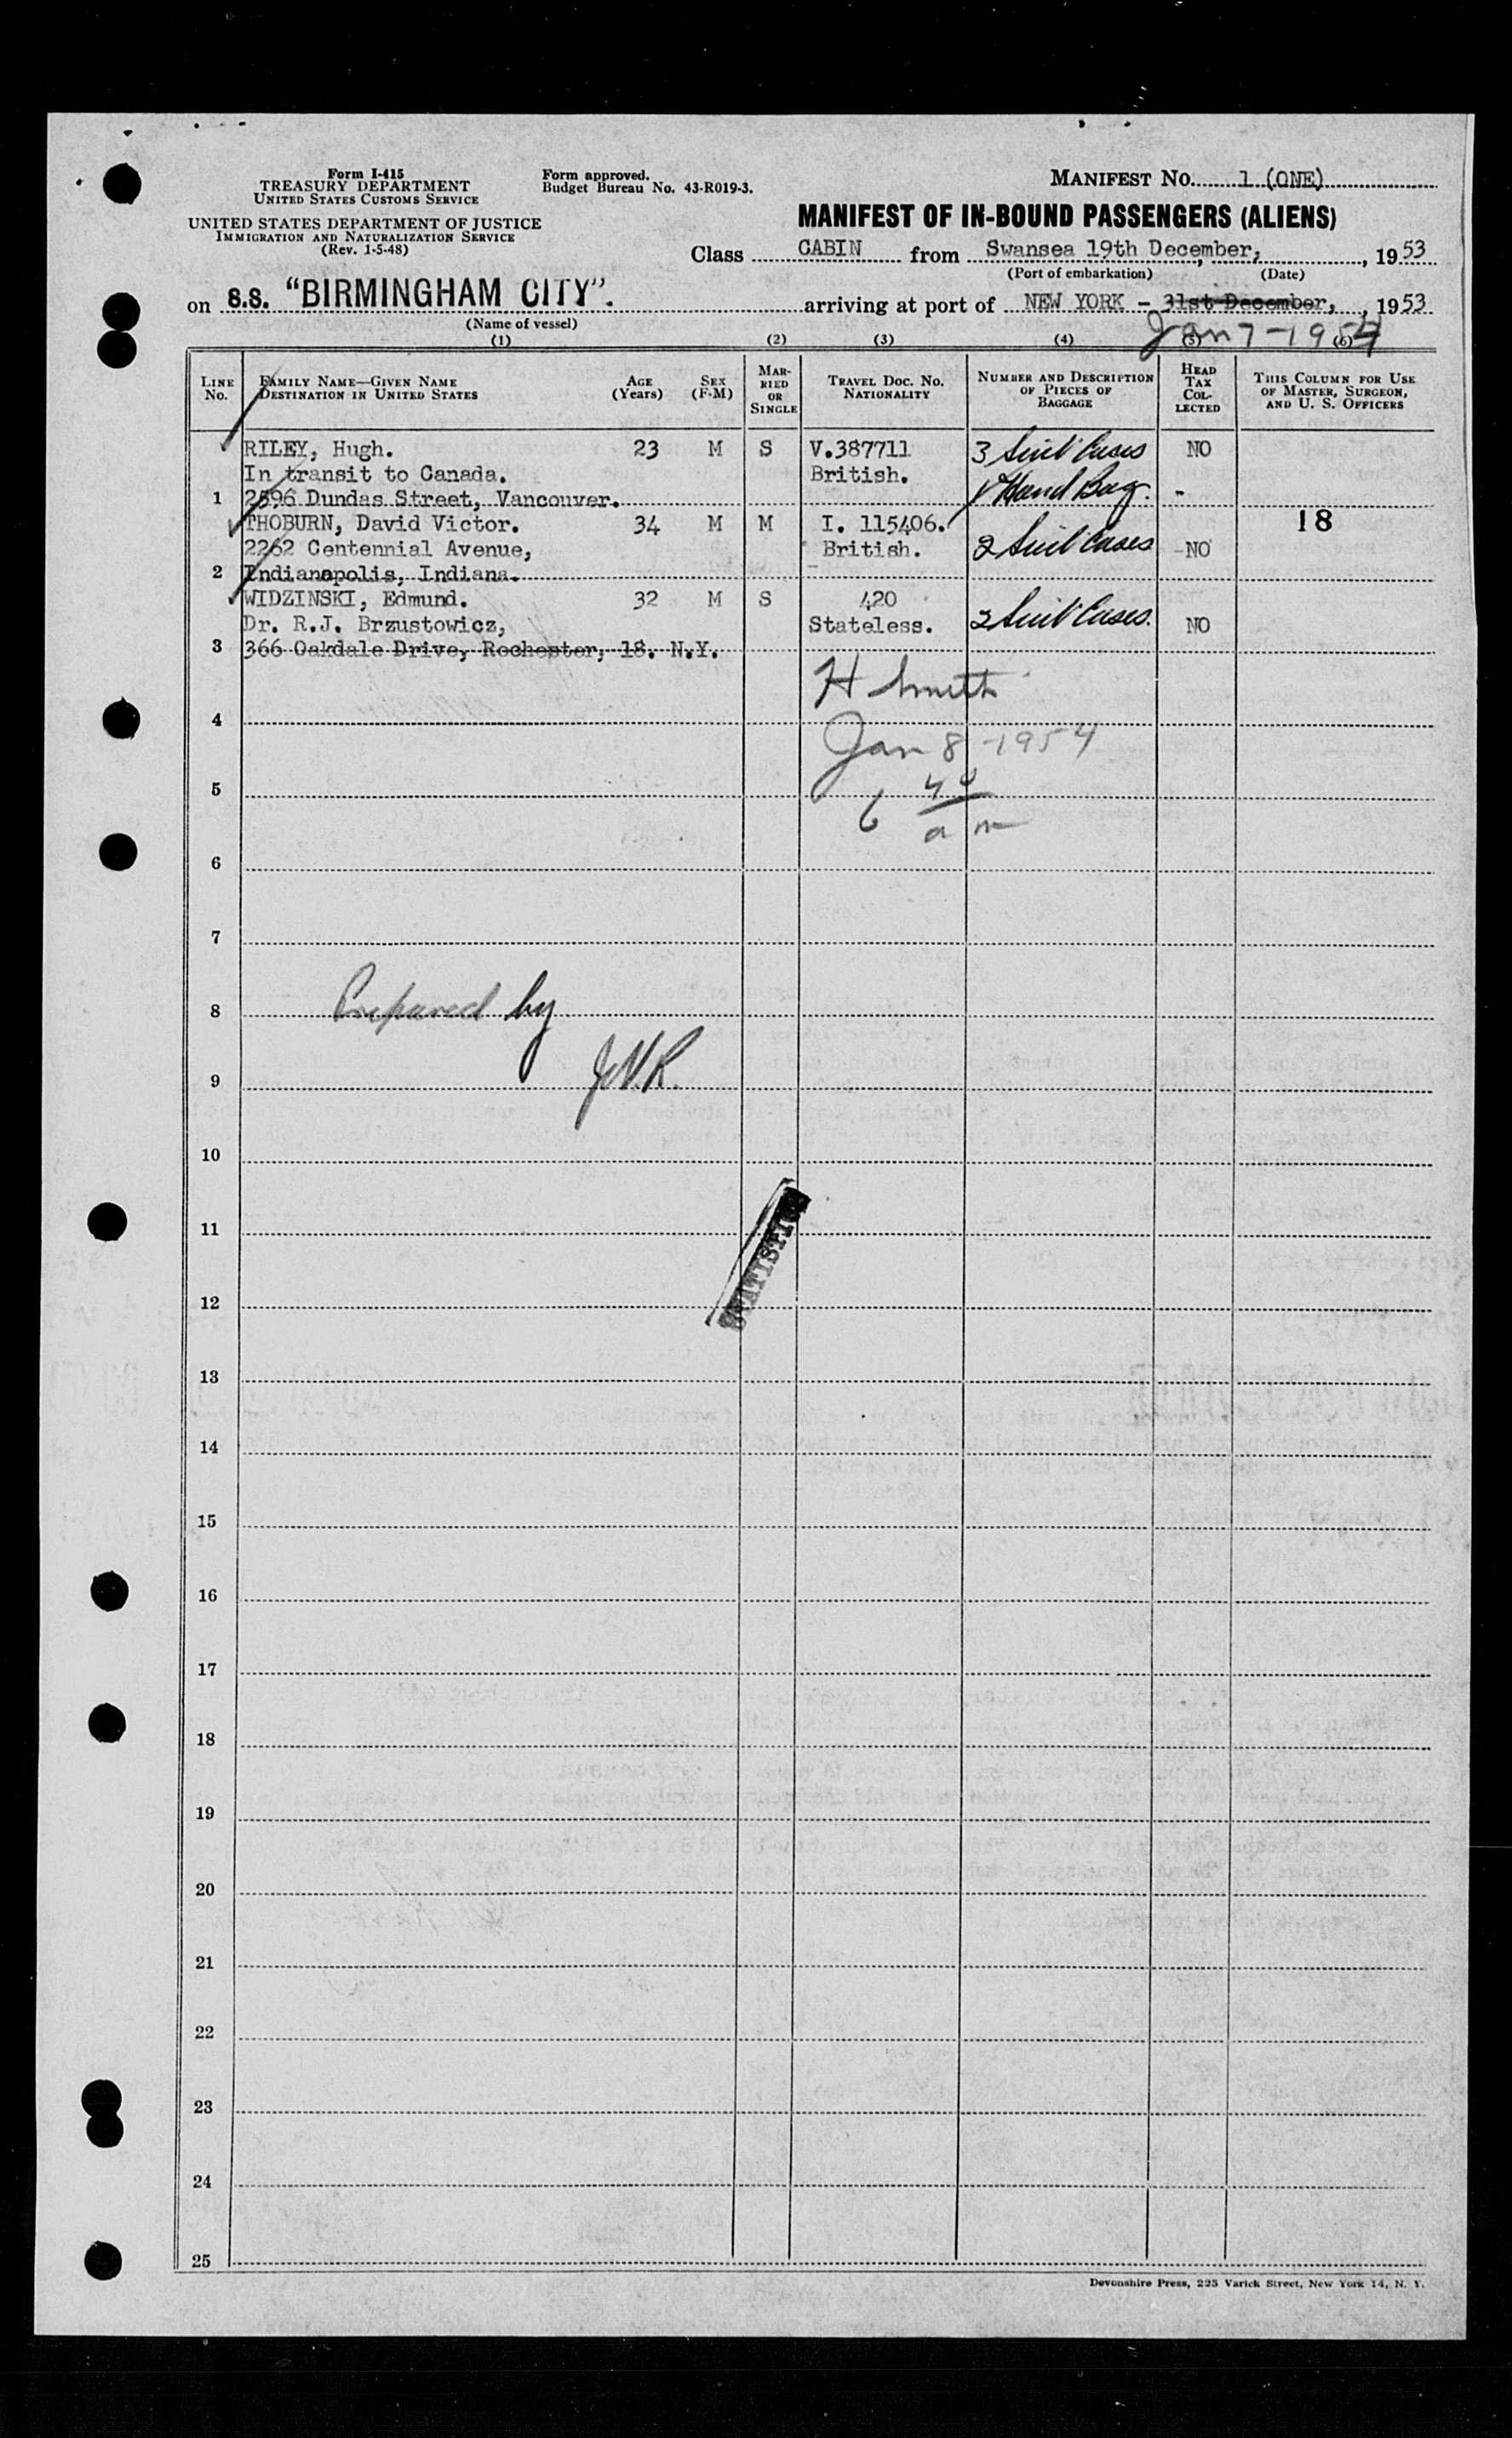 Form I-415
TREASURY DEPARTMENT
UNITED STATES CUSTOMS SERVICE
UNITED STATES DEPARTMENT OF JUSTICE
IMMIGRATION AND NATURALIZATION SERVICE
(Rev. 1-5-48)
Form approved.
Budget Bureau No. 43-R019-3.
MANIFEST NO. 1 (ONE)
MANIFEST OF IN-BOUND PASSENGERS (ALIENS)
Class CABIN from Swansea 19th December, , 1953
(Port of embarkation) (Date)
on S.S. "BIRMINGHAM CITY". arriving at port of NEW YORK - 31st December, , 1953
(Name of vessel) Jan 7-1954
(1) (2) (3) (4) (5) (6)
LINE No. FAMILY NAME—GIVEN NAME DESTINATION IN UNITED STATES AGE (Years) SEX (F-M) MARRIED OR SINGLE TRAVEL DOC. NO. NATIONALITY NUMBER AND DESCRIPTION OF PIECES OF BAGGAGE HEAD TAX COLLECTED THIS COLUMN FOR USE OF MASTER, SURGEON, AND U. S. OFFICERS
RILEY, Hugh. 23 M S V.387711 3 Suit Cases NO
In transit to Canada. British.
1 2596 Dundas Street, Vancouver. 1 Hand Bag. -
THOBURN, David Victor. 34 M M I. 115406. 18
2262 Centennial Avenue, British. 2 Suit Cases NO
2 Indianapolis, Indiana.
WIDZINSKI, Edmund. 32 M S 420
Dr. R.J. Brzustowicz, Stateless. 2 Suit Cases. NO
3 366 Oakdale Drive, Rochester, 18. N.Y.
H Smith
4
Jan 8-1954
5
6 40 am
6
7
8 Prepared by
9 J.V.R.
10
11
STATISTICS
12
13
14
15
16
17
18
19
20
21
22
23
24
25
Devonshire Press, 225 Varick Street, New York 14, N. Y.